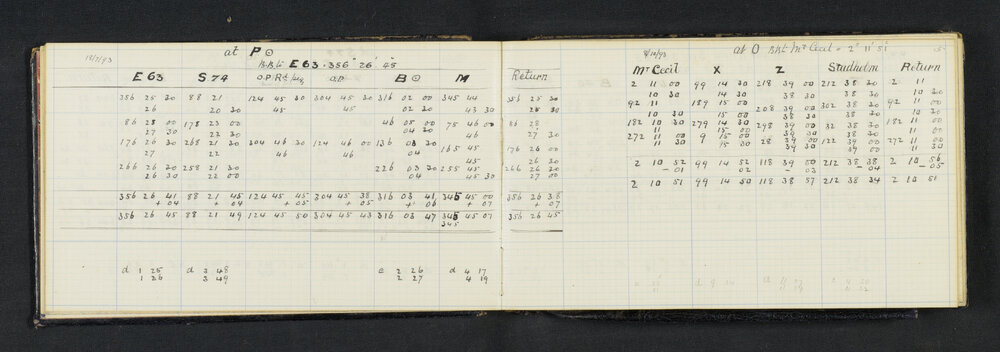 13/7/93
at P ⊙
Bkt. E 63 · 356° 26' 45"
E 63 S 74 O.P. Rt. peg O.P. B ⊙ M Return
356 25 30 88 21 124 45 30 304 45 30 316 02 00 345 44 356 25 30
26 20 30 45 45 02 20 43 30 25 30
86 28 00 178 23 00 46 05 00 75 46 00 86 28
27 30 22 30 04 20 46 27 30
176 26 30 268 21 30 304 46 30 124 46 00 136 03 30 165 45 176 26 00
27 22 46 46 04 45 26 30
266 26 30 258 21 30 226 03 30 255 45 266 26 30
26 30 22 00 04 45 30 27 00
356 26 41 88 21 45 124 45 45 304 45 38 316 03 41 345 45 00 356 26 38
+ 04 + 04 + 05 + 05 + 06 + 07 + 07
356 26 45 88 21 49 124 45 50 304 45 43 316 03 47 345 45 07 356 26 45
345
d 1 25 d 3 48 c 2 26 d 4 17
1 26 3 49 2 27 4 19
8/10/93
at O Bkt. Mt Cecil = 2° 11' 51"
Mt Cecil X Z Studholm Return
2 11 00 99 14 30 218 39 00 212 38 30 2 11
10 30 14 30 38 30 38 30 10 30
92 11 189 15 00 208 39 00 302 38 30 92 11 00
10 30 15 00 38 30 38 30 11 00
182 10 30 279 14 30 298 39 00 32 38 30 182 11 00
11 15 00 38 30 38 30 11 00
272 11 00 9 15 00 28 39 00 122 39 00 272 11 00
11 30 15 00 38 30 39 00 11 30
2 10 52 99 14 52 118 39 00 212 38 38 2 10 56
- 01 02 - 03 - 04 - 05
2 10 51 99 14 50 118 38 57 212 38 34 2 10 51